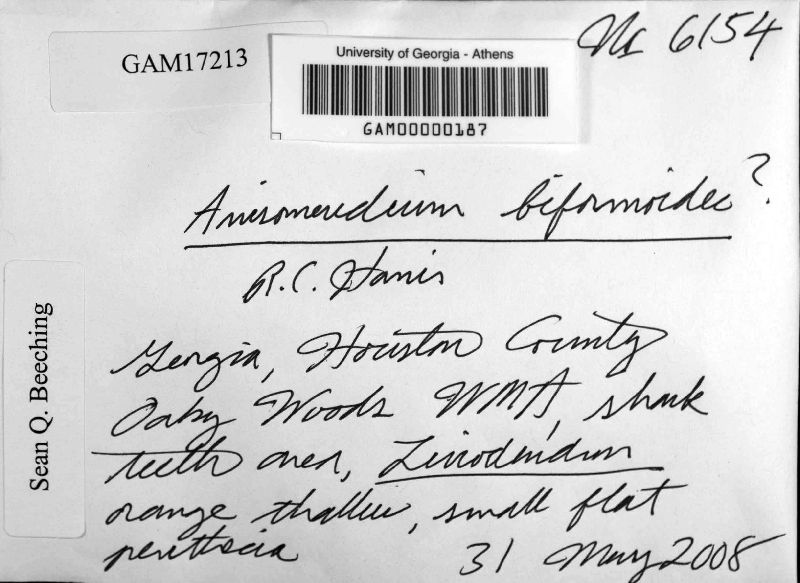 GAM17213
University of Georgia - Athens
GAM00000187
No 6154
Anisomeridium biformoides?
R.C. Harris
Georgia, Houston County
Oaky Woods WMA, shark
teeth area, Liriodendron
orange thallus, small flat
perithecia 31 May 2008
Sean Q. Beeching